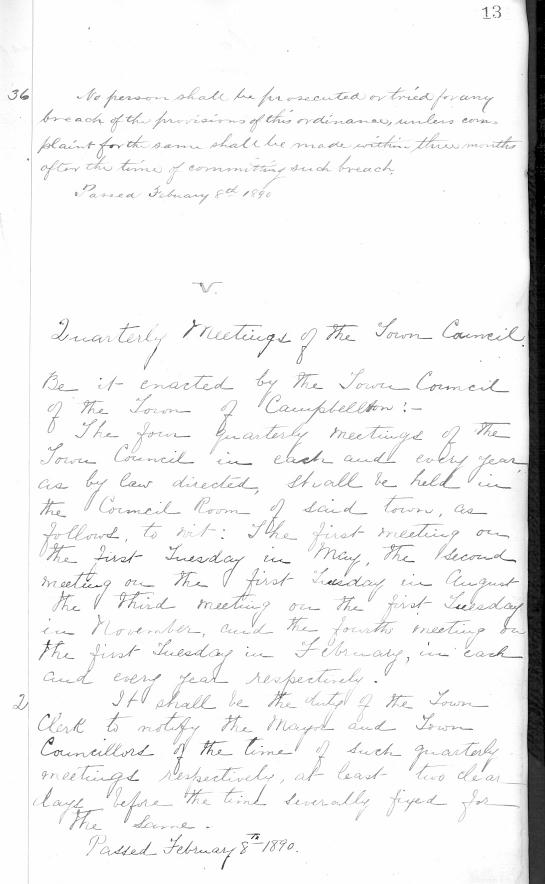 13
36 No person shall be prosecuted or tried for any
breach of the provisions of this ordinance, unless com
plaint for the same shall be made within three months
after the time of committing such breach.
Passed February 8th 1890
V.
Quarterly Meetings of the Town Council.
Be it enacted by the Town Council
of the Town of Campbellton:-
The four quarterly meetings of the
Town Council in each and every year
as by law directed, shall be held in
the Council Room of said town, as
follows, to wit: The first meeting on
the first Tuesday in May, the second
meeting on the first Tuesday in August
the third meeting on the first Tuesday
in November, and the fourth meeting on
the first Tuesday in February, in each
and every year respectively.
2 It shall be the duty of the Town
Clerk to notify the Mayor and Town
Councillors of the time of such quarterly
meetings respectively, at least two clear
days before the time severally fixed for
the same.
Passed February 8th 1890.